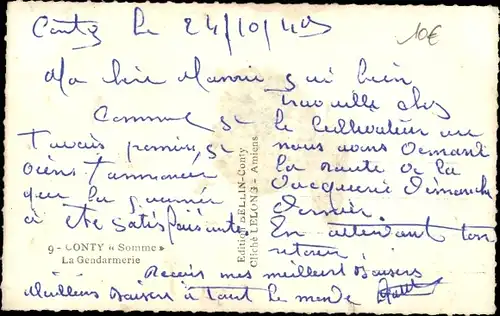 Conty Le 24/10/40
10€
Ma chère Mamie,
Comme je
t'avais promis, je
viens t'annoncer
que la journée
à été satisfaisante
j'ai bien
travaillé chez
le cultivateur
nous avons demandé
la route de la
dimanche
dernier.
En attendant ton
retour
Reçois mes meilleurs baisers
Meilleurs baisers à tout le monde
9 - CONTY « Somme »
La Gendarmerie
Edition BELLIN-Conty
Cliché LELONG - Amiens